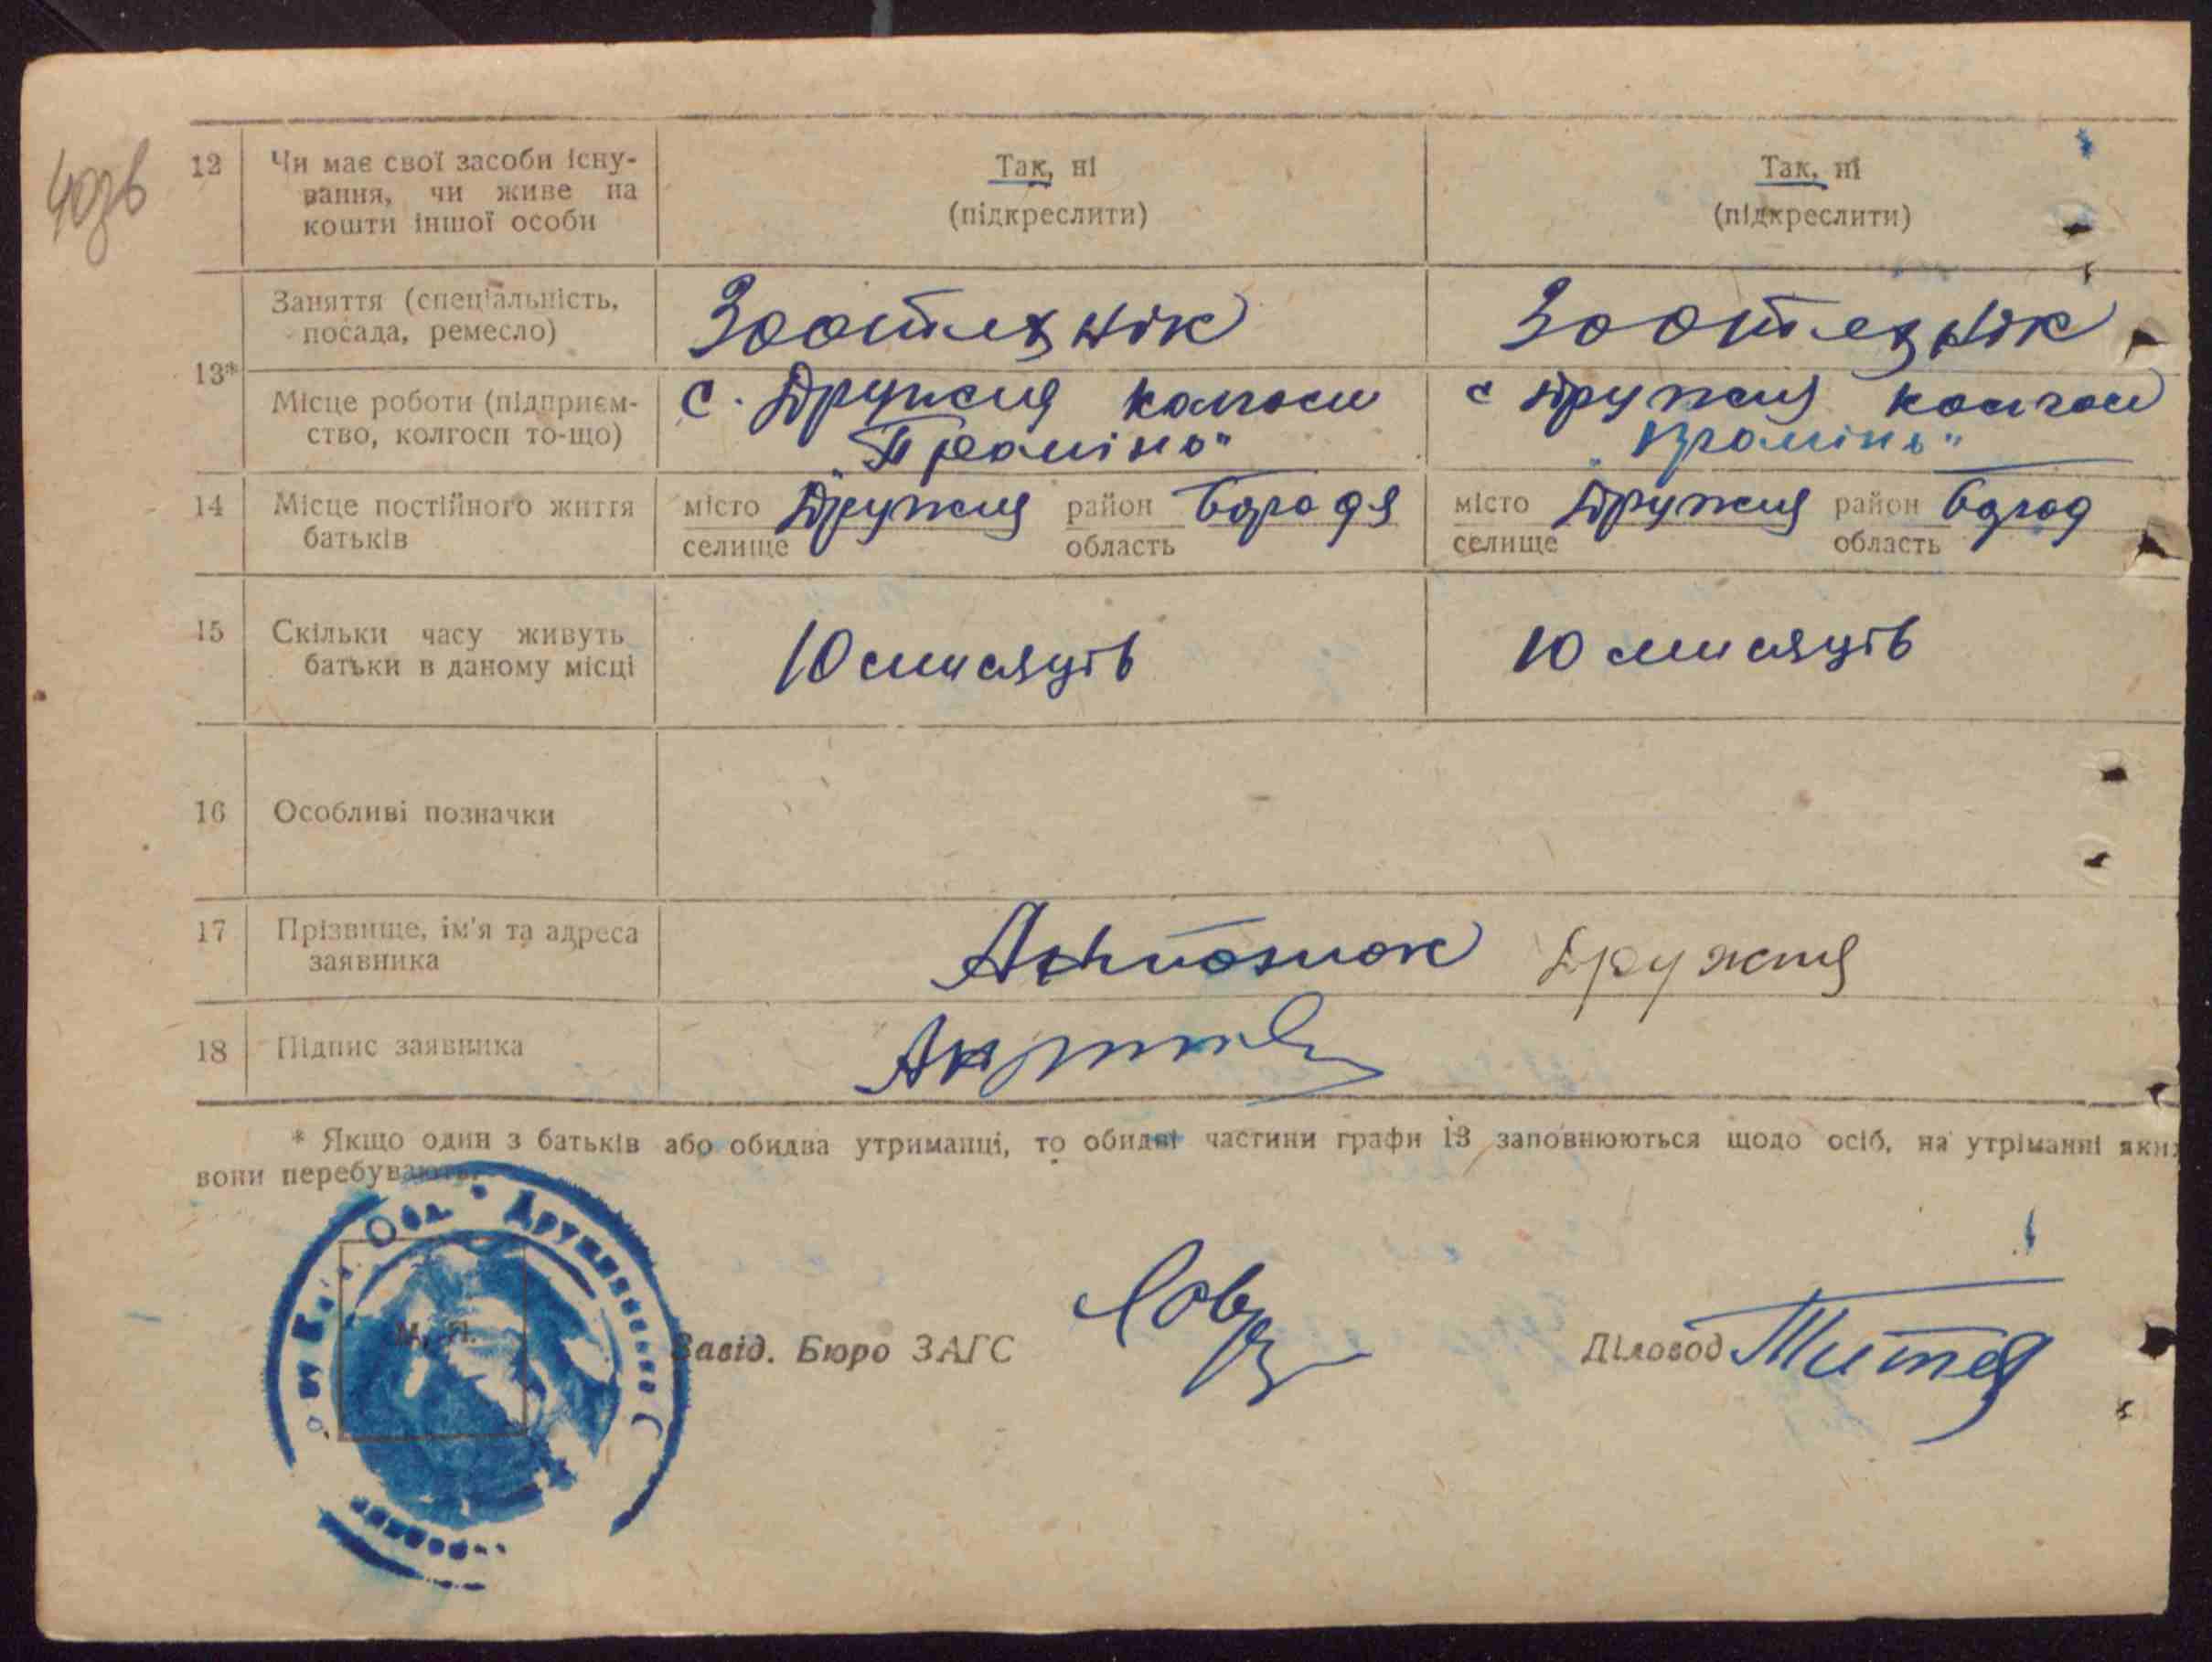 12 Чи має свої засоби існу-
вання, чи живе на
кошти іншої особи
Так, ні
(підкреслити)
Так, ні
(підкреслити)
13*
Заняття (спеціальність,
посада, ремесло)
Зоотехнік
Зоотехнік
Місце роботи (підприєм-
ство, колгосп то-що)
с. Дружня колгосп
"Промінь"
с Дружня колгосп
"Промінь"
14 Місце постійного життя
батьків
місто Дружня район
селище область
місто Дружня район
селище область
15 Скільки часу живуть
батьки в даному місці
10 мисяців
10 мисяців
16 Особливі позначки
17 Прізвище, ім'я та адреса
заявника
Антонюк Дружня
18 Підпис заявника
* Якщо один з батьків або обидва утриманці, то обидві частини графи 13 заповнюються щодо осіб, на утріманні яких
вони перебувають.
Обл. * Дружнянська
М. П.
Завід. Бюро ЗАГС
Діловод